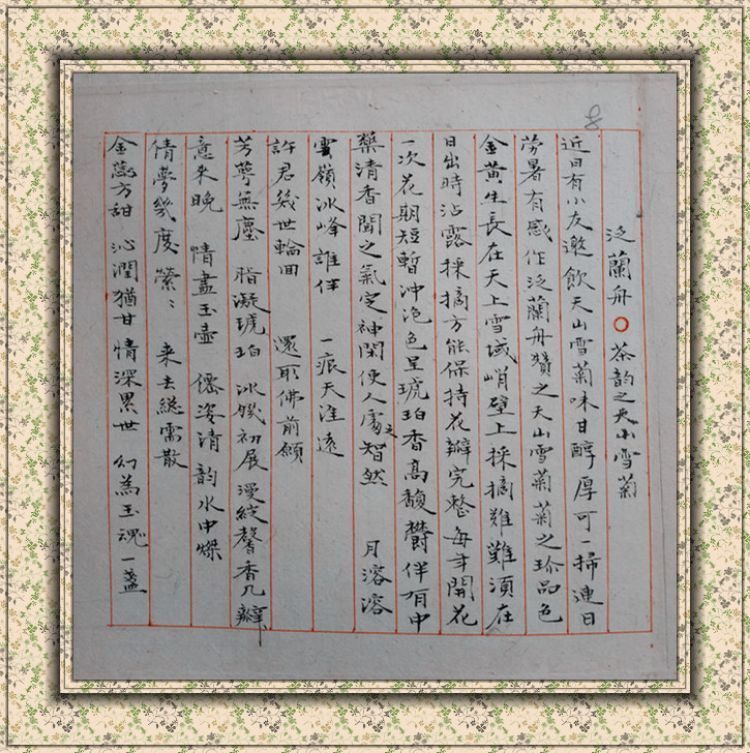 泛蘭舟○茶韵之天山雪菊
近日有小友邀飲天山雪菊味甘醇厚可一掃連日
勞暑有感作泛蘭舟贊之天山雪菊菊之珍品色
金黃生長在天上雪域峭壁上採摘難難須在
日出時沾露採摘方能保持花瓣完整每年開花
一次花期短暫沖泡色呈琥珀香高馥欝伴有中
藥清香聞之氣定神閑使人處之智然 月溶溶
雲嶺冰峰誰伴 一痕天涯遠
許君幾世輪回 還取佛前願
芳萼無塵 脂凝琥珀 冰幾初展 漫綻馨香几瓣
意來晚 情盡玉壺 僊姿清韵水中燦
倩夢幾度縈〻 來去總需散
金蕊方甜 沁潤猶甘 情深累世 幻為玉魂一盞